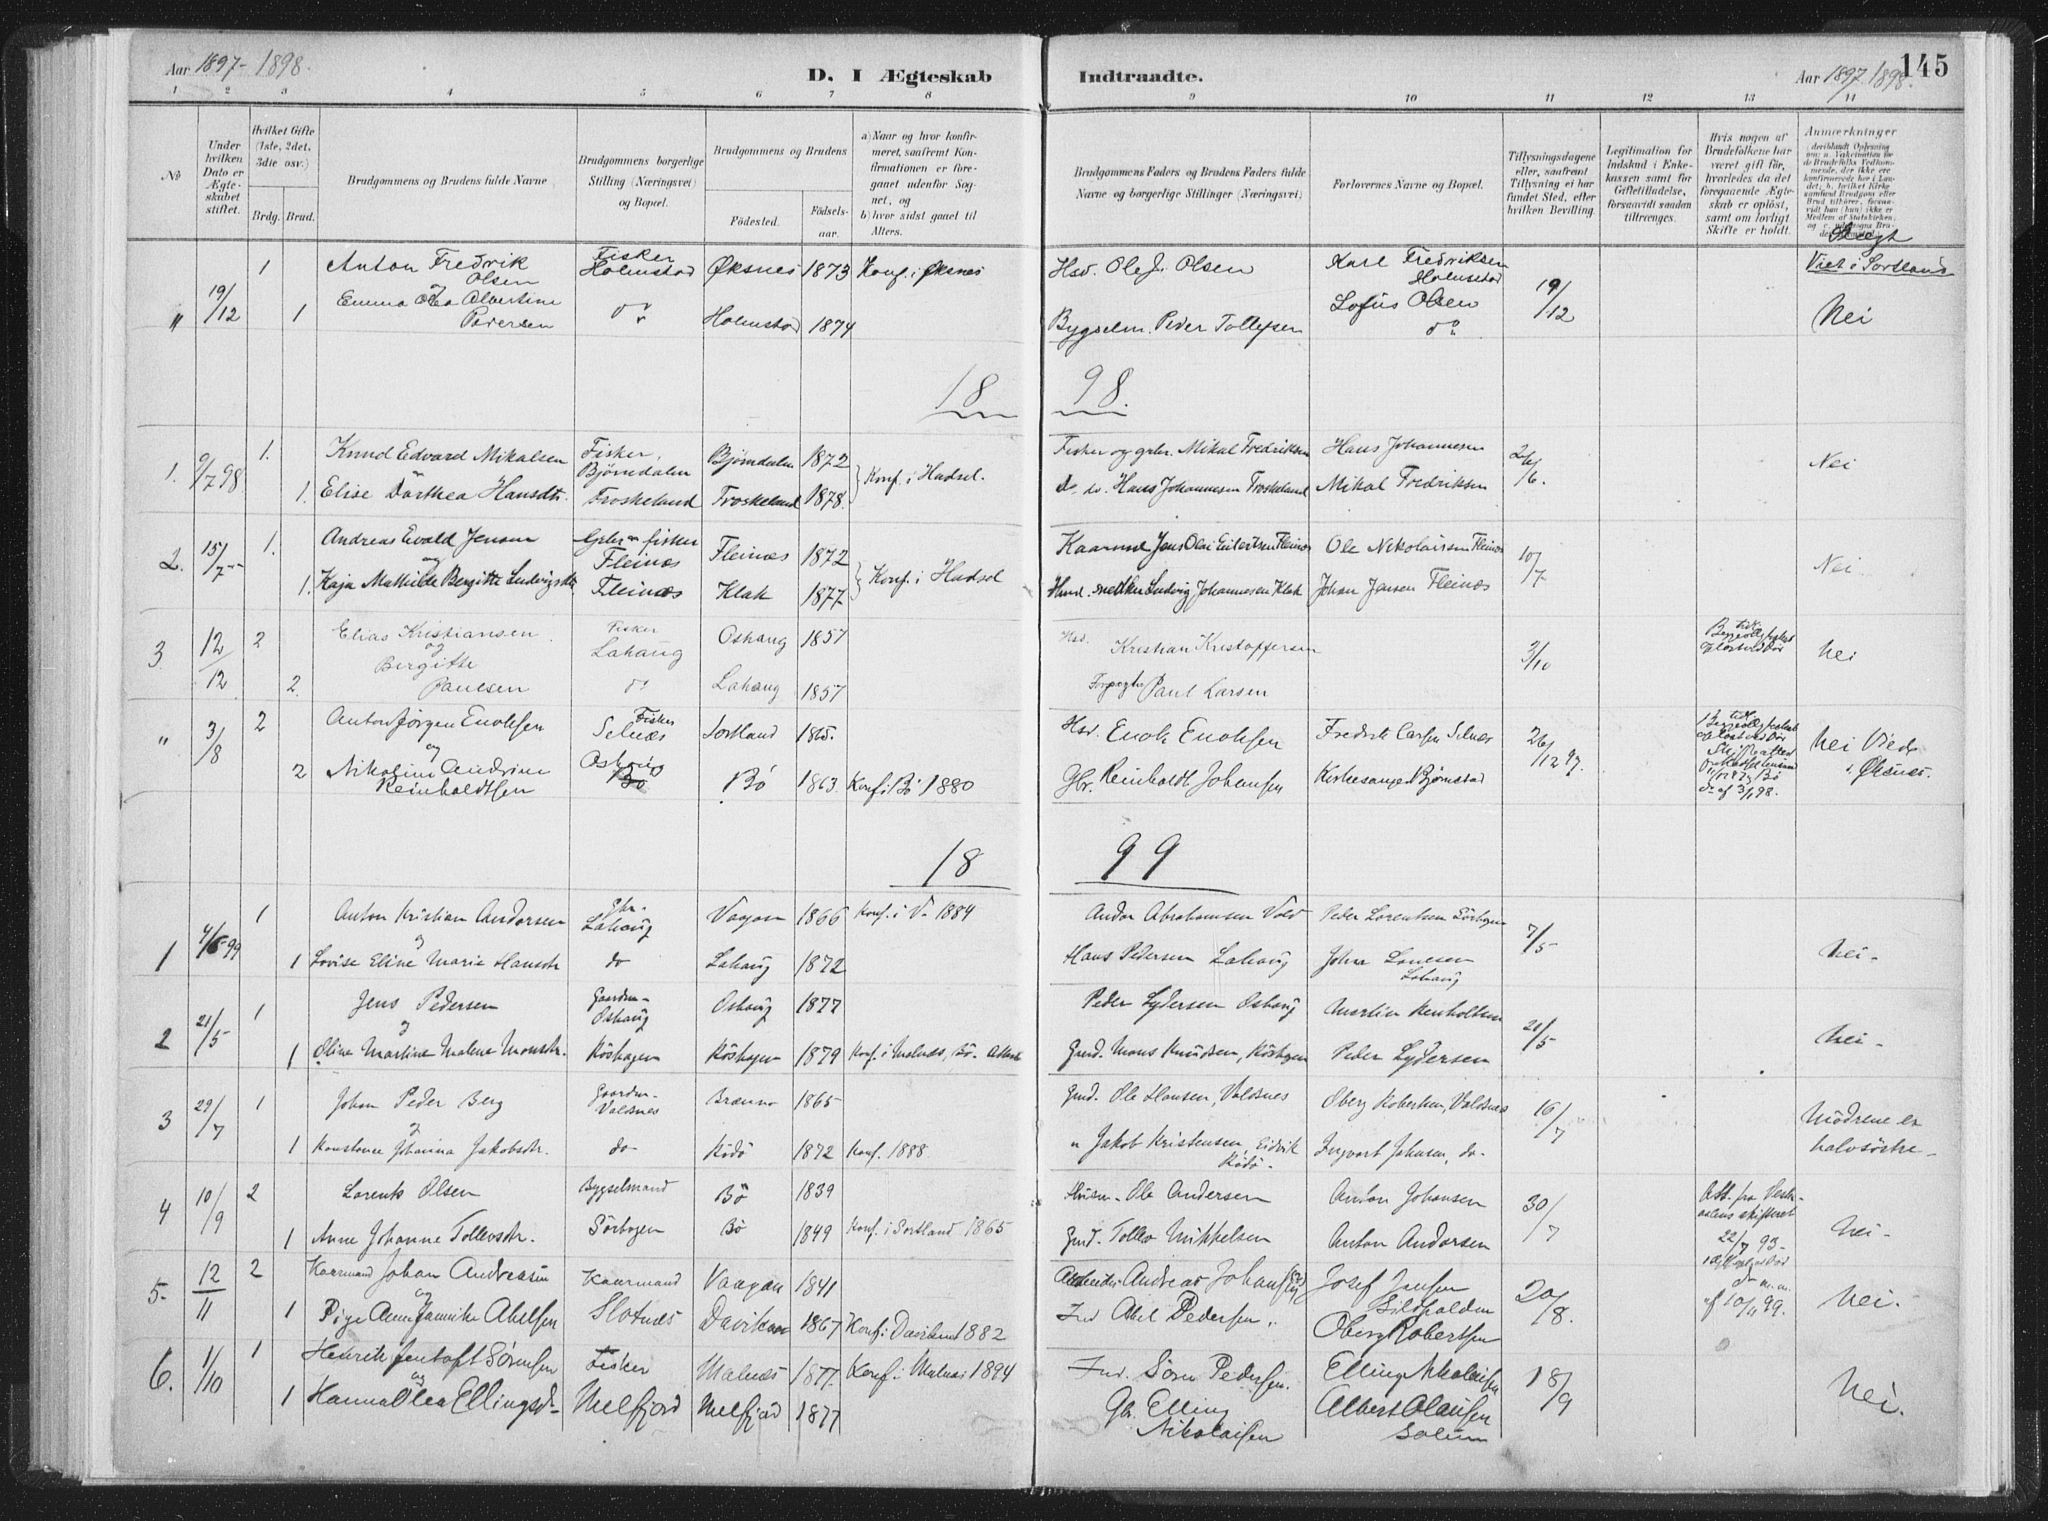 Aar 1897-1898.
D. I Ægteskab
Indtraadte.
Aar 1897-1898.
145
1 2 3 4 5 6 7 8 9 10 11 12 13 14
No
Under hvilken Dato er Ægteskabet stiftet.
Hvilket Gifte (1ste, 2det, 3die osv.)
Brdg. Brud.
Brudgommens og Brudens fulde Navne
Brudgommens borgerlige Stilling (Næringsvei) og Bopæl.
Brudgommens og Brudens
Fødested.
Fødselsaar.
a) Naar og hvor konfirmeret, saafremt Konfirmationen er foregaaet udenfor Sognet, og
b) hvor sidst gaaet til Alters.
Brudgommens Faders og Brudens Faders fulde Navne og borgerlige Stillinger (Næringsvei)
Forlovernes Navne og Bopæl.
Tillysningsdagene eller, saafremt Tillysning ei har fundet Sted, efter hvilken Bevilling.
Legitimation for Indskud i Enkekassen samt for Giftetilladelse, forsaavidt saadan tiltrænges.
Hvis nogen af Brudefolkene har været gift før, hvorledes da det foregaaende Ægteskab er opløst, samt om lovligt Skifte er holdt.
Anmærkninger
1 Anton Fredrik Olsen Fisker Holmstad Øksnes 1873 Konf. i Øksnes Hsd. Ole J. Olsen Karl Fredriksen Holmstad Viet i Sortland
" 19/12 1 Emma Alvertine Pedersen do Holmstad 1874 Bygselm. Peder Tollefsen Lofus Olsen do 19/12 Nei
18 98.
1. 9/7 98 1. Knud Edvard Mikalsen Fisker, Bjørndalen Bjørndalen 1872 Konf. i Hadsel. Fisker og grbr. Mikal Fredriksen Hans Johannesen 26/6. Nei
1. Elise Dorthea Hansdtr. Froskeland Froskeland 1878. do. do. Hans Johannesen Froskeland Mikal Fredriksen
2. 15/7 1. Andreas Evald Jensen og Grbr. fisker Fleinæs Fleinæs 1872 Konf. i Hadsel Kaarmd Jens Olai Eilertsen Fleinæs Ole Nikolaisen Fleinæs 10/7 Nei
1. Kaja Mathilde Bergitte Ludvigsdtr Fleinæs Klak 1877 Ludvig Johannesen Klak Johan Jensen Fleinæs
3 12/12 2 Elias Kristiansen. og Fisker Lahaug Oshaug 1857 Hsd. Kristian Kristoffersen 3/10 Nei
2. Bergitte Paulsen do Lahaug 1857 Paul Larsen
" 3/8 2 Anton Jørgen Enoksen og Fisker Selnæs Sortland 1865. Hsd. Enok Enoksen Fredrik Carlsen Selnæs 26/12 97. Nei Vied i Øksnæs.
2 Nikoline Andrine Reinholdtsen Bø Bø 1863 Konf. i Bø 1880 Gbr. Reinholdt Johansen Kirkesanger Bjørnstad
18 99
1 4/6 99 1 Anton Kristian Andorsen og Gbr. Lahaug Vaagan 1866 Konf. i V. 1884 Andor Abrahamsen Vold Peder Lorentsen Sørhogen 7/5 Nei.
1 Lovise Eline Marie Hansdtr do Lahaug 1872 Hans Pedersen Lahaug Johan Lahaug
2 21/5 1 Jens Pedersen og Gaardm. Oshaug Oshaug 1877 Peder Lydersen Oshaug Martin Reinholtsen 21/5 Nei.
1 Oline Martine Malene Monsdtr. Røshagen Røshagen 1879 Konf. i Malnæs, Bø. Gmd. Mons Knudsen, Røshagen Peder Lydersen
3 29/7 1 Johan Peder Berg og Gaardm. Valdsnes 1865 Gmd. Ole Hansen, Valdsnes Oberg Robertsen, Valdsnes 16/7 Mødrene er halvsøstre.
1 Konstance Johanna Jakobsdtr. do Rødø 1872 Konf. 1888. " Jakob Kristensen, Eidvik Rødø. Ingvart Johnsen, do.
4 10/9 2 Lorents Olsen Bygselmand Bø 1839 Ole Andersen Anton Johansen 30/7 Att. fra Vesteraalens skifteret 22/7 93. Nei.
1 Anne Johanne Tollevsdtr. Sørhogen Bø 1849 Konf. i Sortland 1865 Gmd. Tollev Mikkelsen Anton Andorsen
5. 12/11 2 Kaarmand Johan Andreassen og Kaarmand Slotnæs Vaagan 1841 Arbeider Andreas Johansen Josef Jensen Sildpolden 20/8. af 10/11 99. Nei.
1 Pige Anne Jannike Abelsen Davik 1867 Konf. i Davik 1882 Ind Abel Pedersen. Oberg Robertsen
6. 1/10 1 Henrik Jentoft Sørensen og Fisker Melfjord Malnæs 1877. Konf. i Malnæs 1894 Ind. Søren Pedersen. Elling Nikolaisen 18/9 Nei.
1 Hanna Olea Ellingsd. Melfjord 1877 Gbr. Elling Nikolaisen Albert Olausen Solum